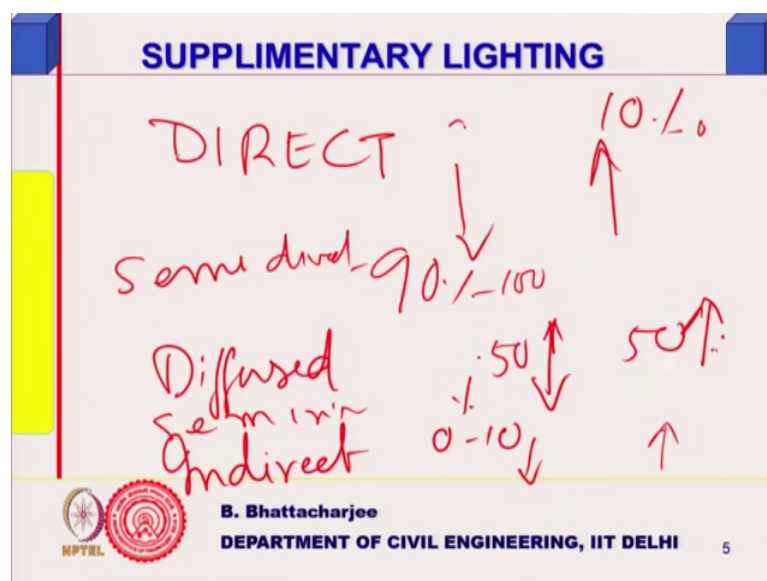 SUPPLIMENTARY LIGHTING
DIRECT 10%
Semi direct 90%-100
Diffused 50 50%
Semi in
Indirect 0-10 %
NPTEL
B. Bhattacharjee
DEPARTMENT OF CIVIL ENGINEERING, IIT DELHI 5